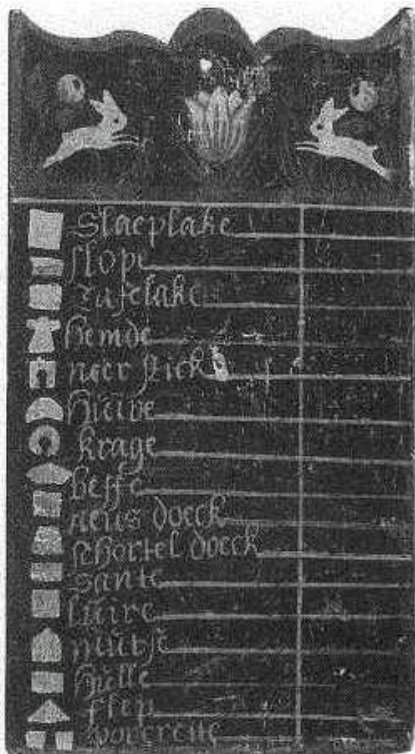 Slaeplake
slope
Tafelake
hemde
neer stick
huive
krage
beffe
neus doeck
schortel doeck
luire
mutse
hülle
flep